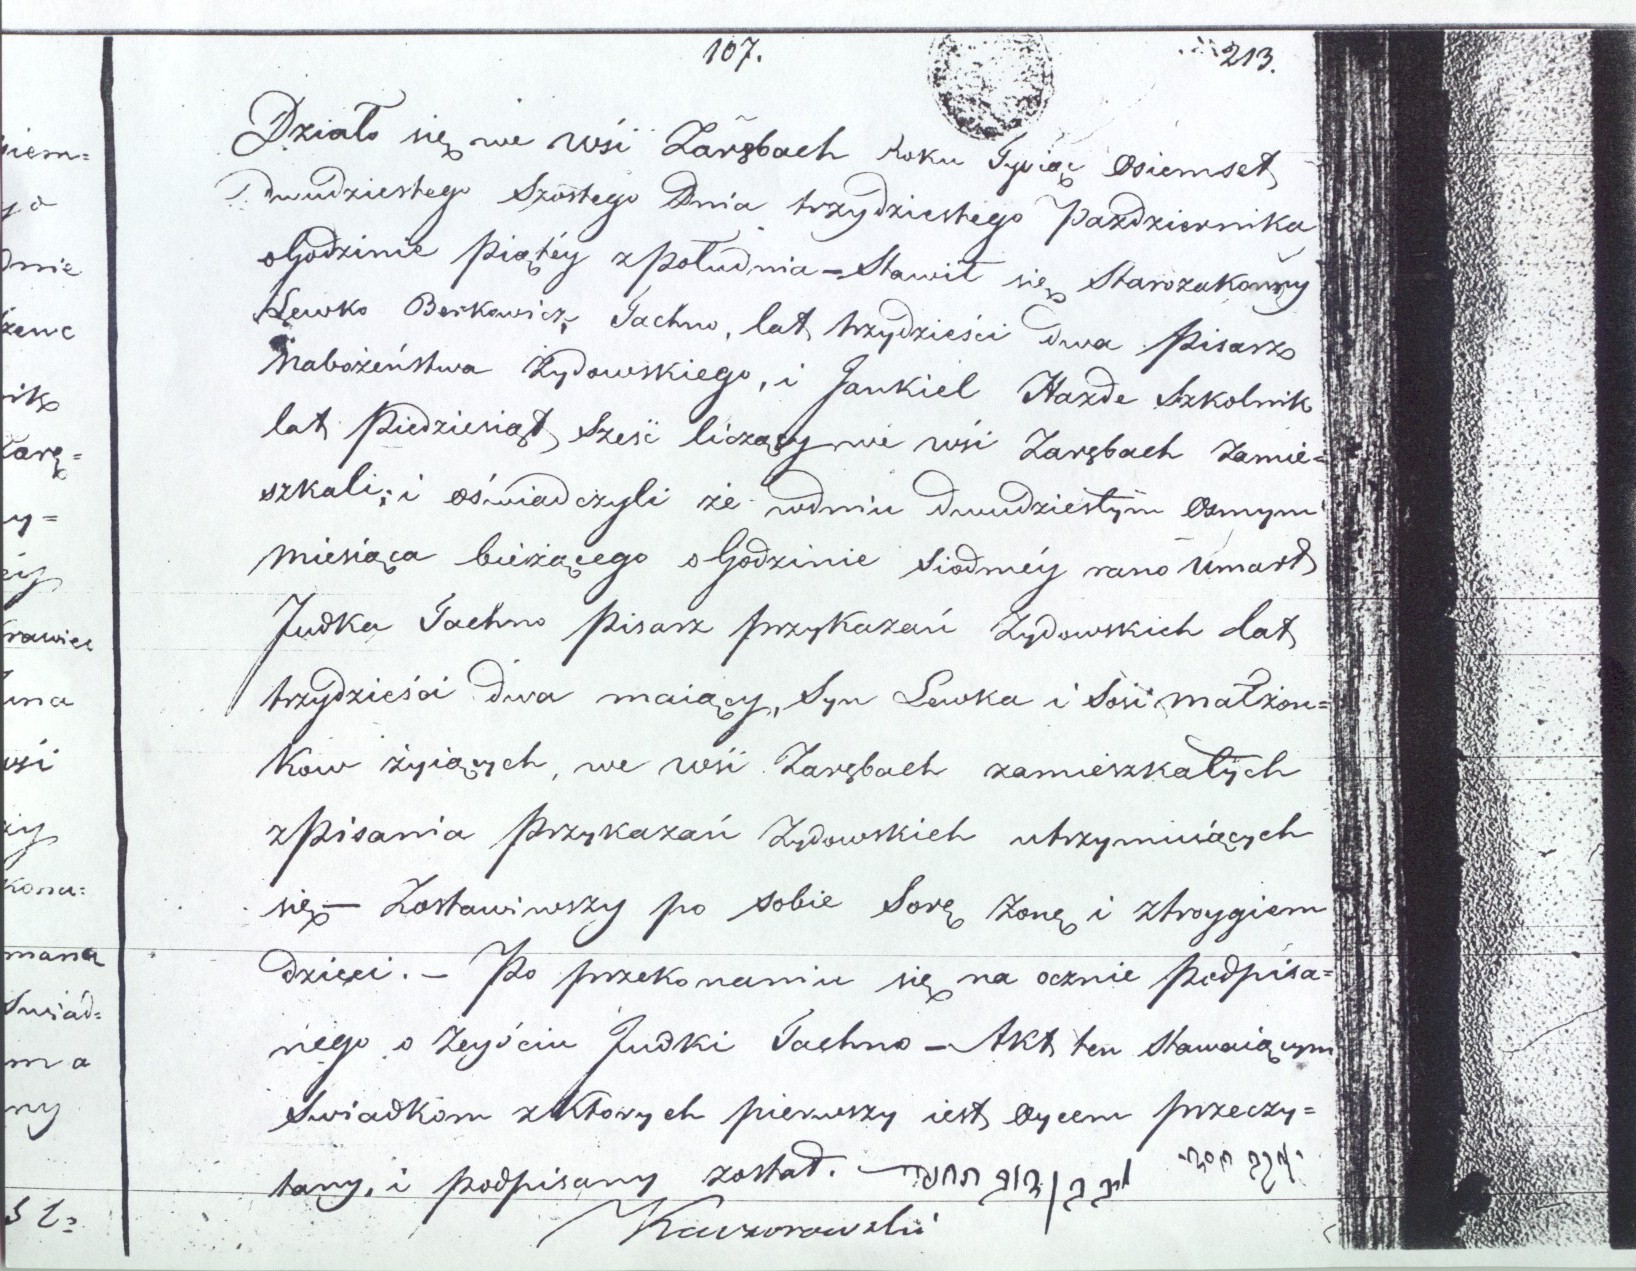 107.
213.
Działo się we wśi Zarębach roku Tysiąc osiemset
dwudziestego Szóstego Dnia trzydziestego Pazdziernika
o Godzinie piątéy z południa – Stawił się Starozakonny
Lewko Berkowicz Tachno, lat trzydzieści dwa Pisarz
Nabożeństwa Żydowskiego, i Jankiel Szkolnik
lat Piedziesiąt Sześć liczący we wśi Zarębach Zamie=
szkali; i oświadczyli że w dniu dwudziestym osmym
miesiąca bieżącego o Godzinie siódméy rano Umarł
Judka Tachno Pisarz przykazań Żydowskich lat
trzydzieści dwa maiący, Syn Lewka i Sosi małżon=
ków żyiących, we wśi Zarębach zamieszkałych
z pisania Przykazań Żydowskich utrzymuiących
się – Zostawiwszy po sobie Sorę żonę i z troygiem
dzieci. – Po przekonaniu się na ocznie Podpisa=
nego o Zeyściu Judki Tachno – Akt ten Stawaiącym
Swiadkom z których pierwszy iest oycem przeczy=
tany, i podpisany został.
Kaczorowski
iem=
dnie
Tarę=
y=
rawiec
wśi
kona=
mana
Swiad=
ma
ny